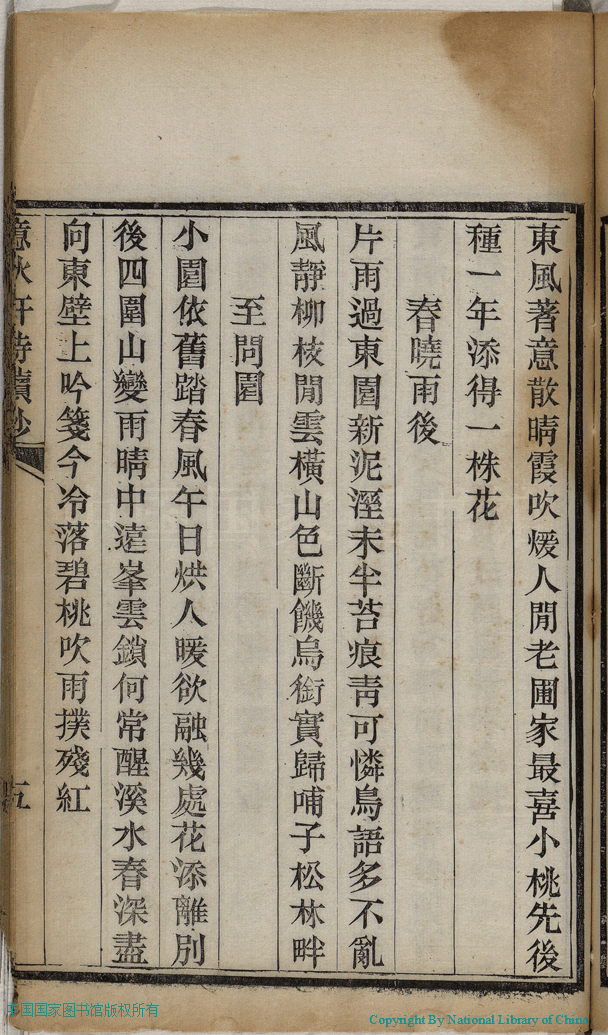 東風著意散晴霞吹煖人閒老圃家最喜小桃先後
種一年添得一株花
春曉雨後
片雨過東園新泥溼未半苔痕靑可憐鳥語多不亂
風靜柳枝閒雲橫山色斷饑烏銜實歸哺子松林畔
至問園
小園依舊踏春風午日烘人暖欲融幾處花添離別
後四圍山變雨晴中遠峯雲鎖何常醒溪水春深盡
向東壁上吟箋今冷落碧桃吹雨撲殘紅
意秋軒詩續鈔
五
中国国家图书馆版权所有
Copyright By National Library of China